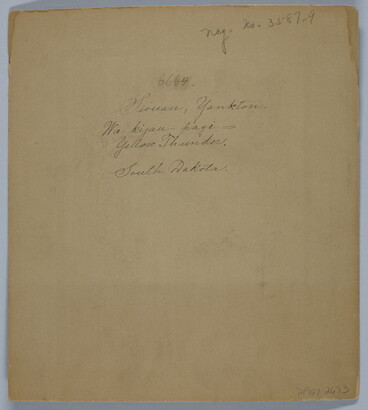 neg. no. 3587-9
6664.
Siouan, Yankton.
Wa-kiyan-hagi =
Yellow Thunder.
South Dakota.